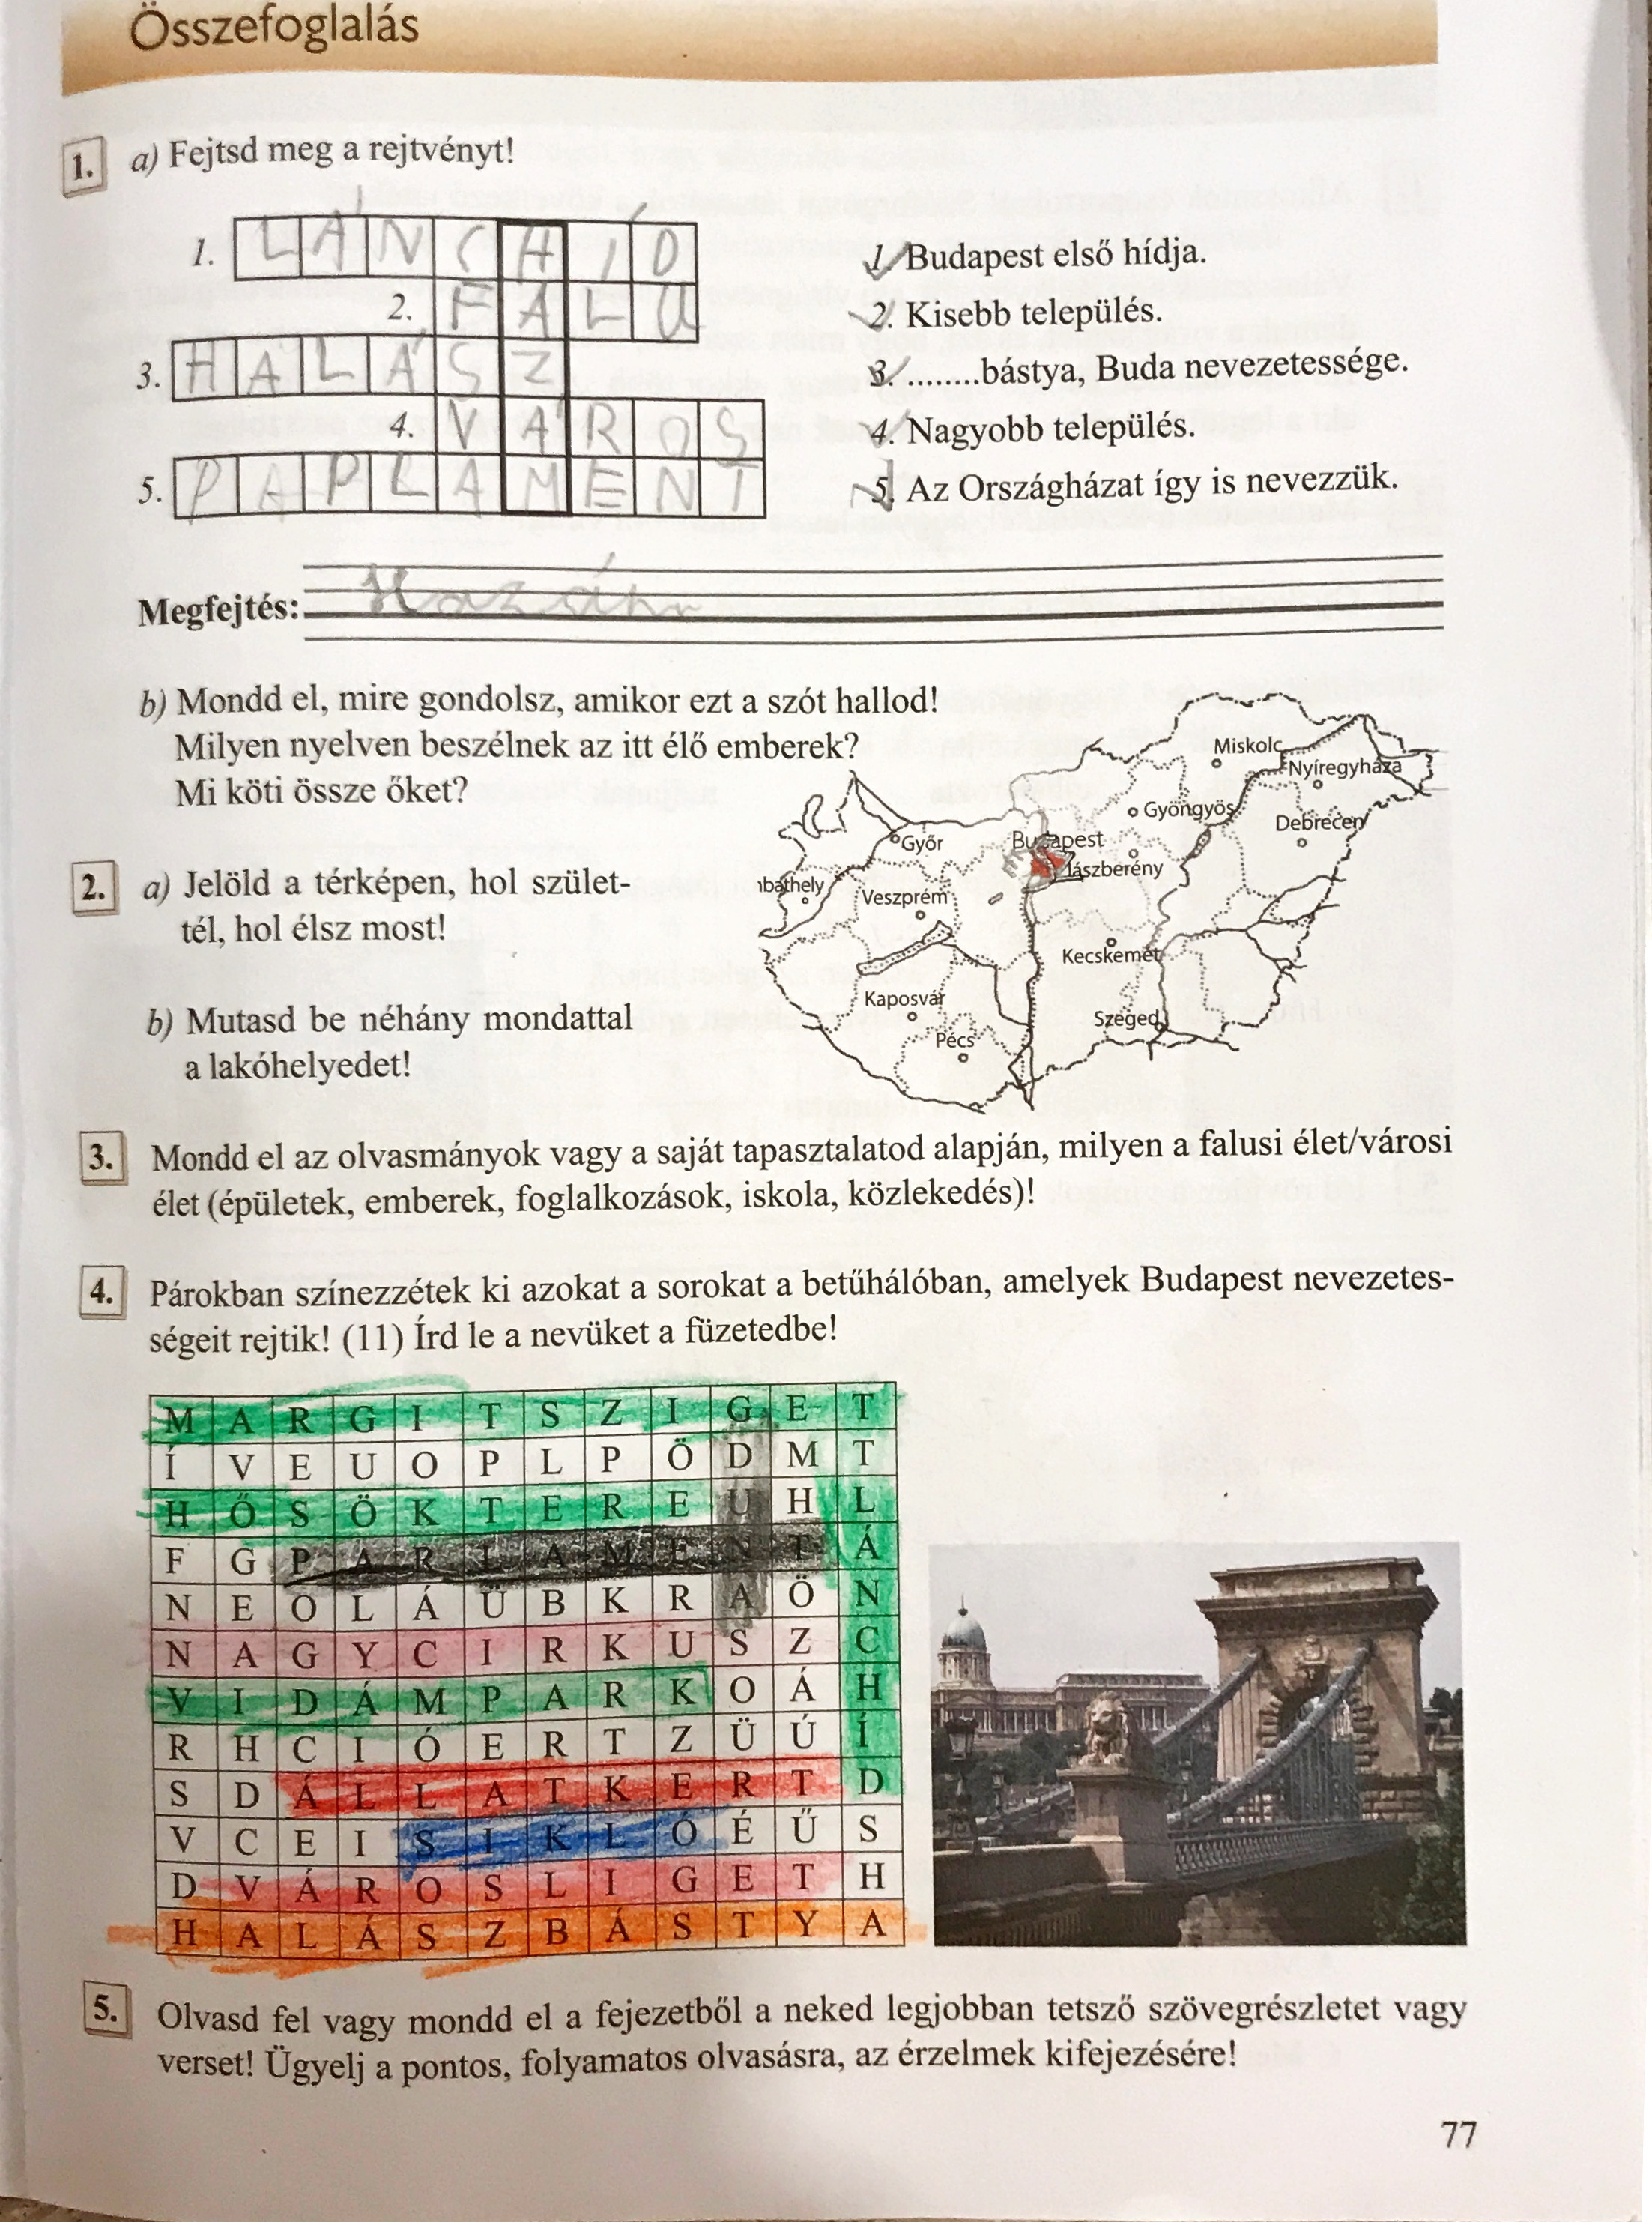 Összefoglalás
1. a) Fejtsd meg a rejtvényt!
1. L Á N C H Í D
2. F A L U
3. H A L Á S Z
4. V Á R O S
5. P A P L A M E N T
1. Budapest első hídja.
2. Kisebb település.
3. ........bástya, Buda nevezetessége.
4. Nagyobb település.
5. Az Országházat így is nevezzük.
Megfejtés: Hazám
b) Mondd el, mire gondolsz, amikor ezt a szót hallod!
Milyen nyelven beszélnek az itt élő emberek?
Mi köti össze őket?
2. a) Jelöld a térképen, hol szület-
tél, hol élsz most!
b) Mutasd be néhány mondattal
a lakóhelyedet!
Miskolc
Nyíregyháza
Gyöngyös
Debrecen
Győr
Budapest
Jászberény
ıbathely
Veszprém
Kecskemét
Kaposvár
Szeged
Pécs
3. Mondd el az olvasmányok vagy a saját tapasztalatod alapján, milyen a falusi élet/városi
élet (épületek, emberek, foglalkozások, iskola, közlekedés)!
4. Párokban színezzétek ki azokat a sorokat a betűhálóban, amelyek Budapest nevezetes-
ségeit rejtik! (11) Írd le a nevüket a füzetedbe!
M A R G I T S Z I G E T
Í V E U O P L P Ö D M T
H Ő S Ö K T E R E U H L
F G P A R L A M E N T Á
N E O L Á Ü B K R A Ö N
N A G Y C I R K U S Z C
V I D Á M P A R K O Á H
R H C I Ó E R T Z Ü Ú Í
S D Á L L A T K E R T D
V C E I S I K L Ó É Ű S
D V Á R O S L I G E T H
H A L Á S Z B Á S T Y A
5. Olvasd fel vagy mondd el a fejezetből a neked legjobban tetsző szövegrészletet vagy
verset! Ügyelj a pontos, folyamatos olvasásra, az érzelmek kifejezésére!
77